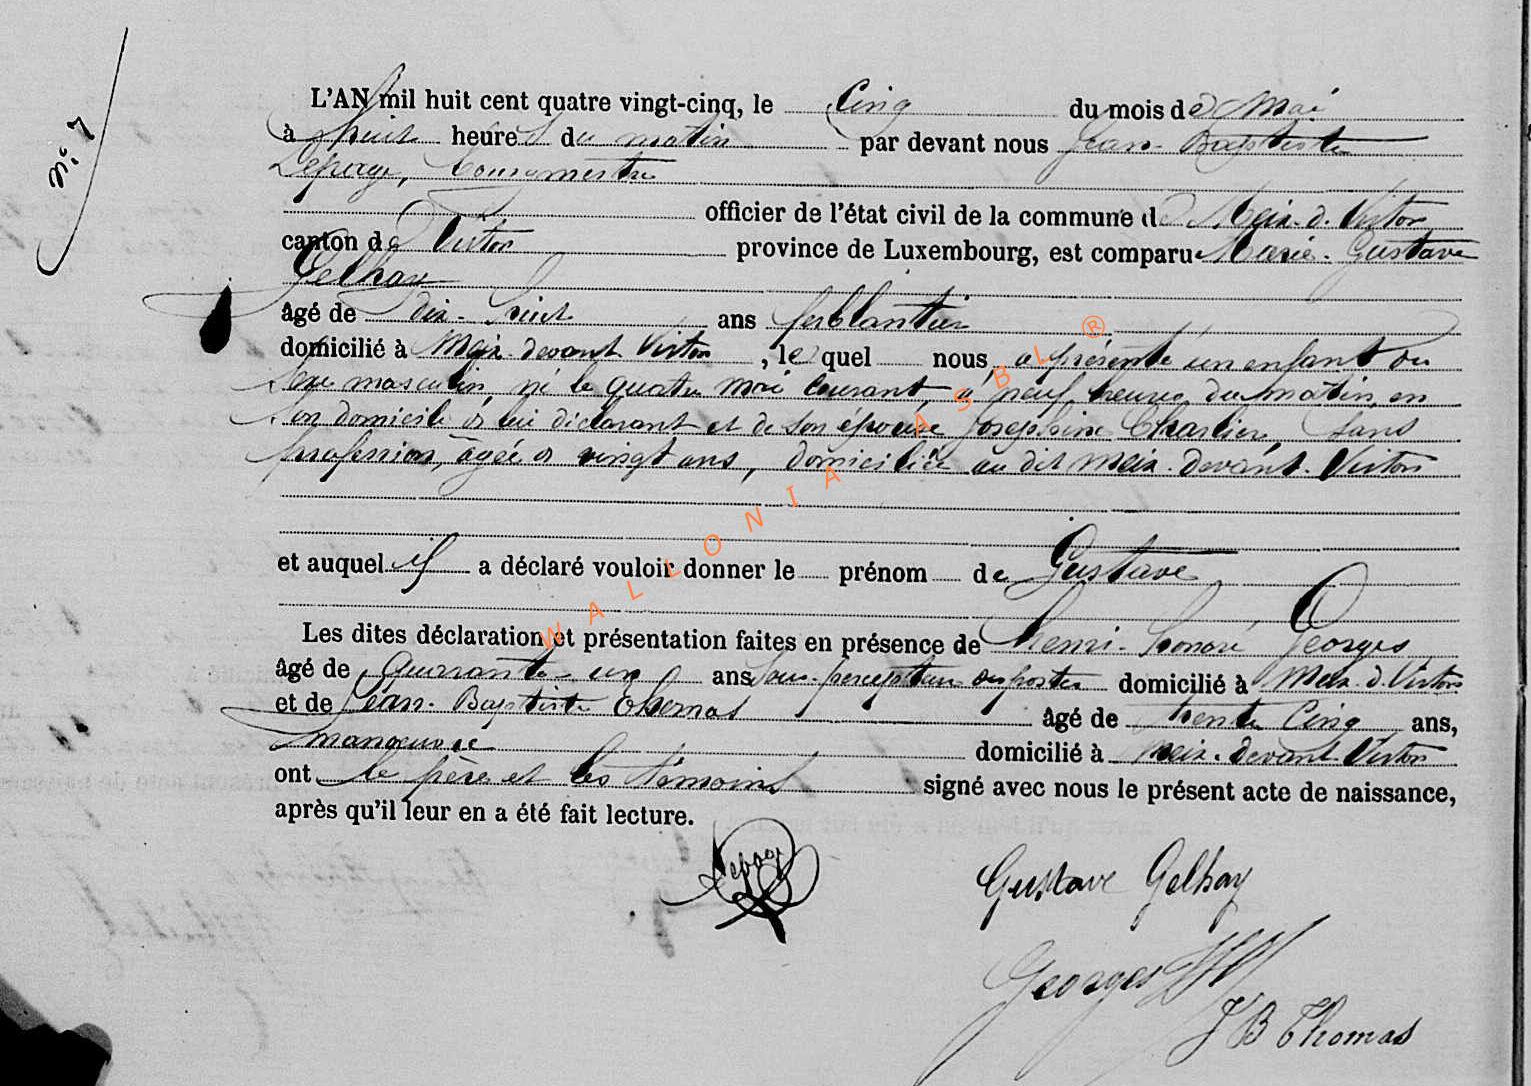 N° 7
L'AN mil huit cent quatre vingt-cinq, le Cinq du mois de Mai
à huit heures du matin par devant nous Jean-Baptiste
Lepage, bourgmestre
officier de l'état civil de la commune de Meix-d-Virton
canton de Virton province de Luxembourg, est comparu Marie-Gustave
Gelhay
âgé de dix-huit ans ferblantier
domicilié à Meix-devant-Virton, lequel nous a présenté un enfant du
sexe masculin, né le quatre mai courant, à neuf heures du matin, en
son domicile de lui déclarant et de son épouse Joséphine Charlier, sans
profession, âgée de vingt ans, domiciliée au dit Meix-devant-Virton
et auquel il a déclaré vouloir donner le prénom de Gustave
Les dites déclaration et présentation faites en présence de Henri-Honoré Georges
âgé de quarante-un ans Sous-percepteur des postes domicilié à Meix-d-Virton
et de Jean-Baptiste Thomas âgé de trente cinq ans,
manœuvre domicilié à Meix-devant-Virton
ont le père et les témoins signé avec nous le présent acte de naissance,
après qu'il leur en a été fait lecture.
Lepage
Gustave Gelhay
Georges HH
J B Thomas
WALLONIA ASBL ®